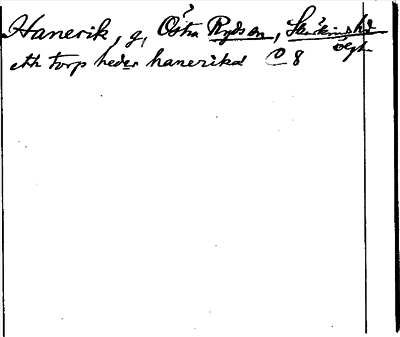 Hanerik, g, Östra Ryds sn, Skärkinds hd
Ögtl.
ett torp heder hanerikd C 8